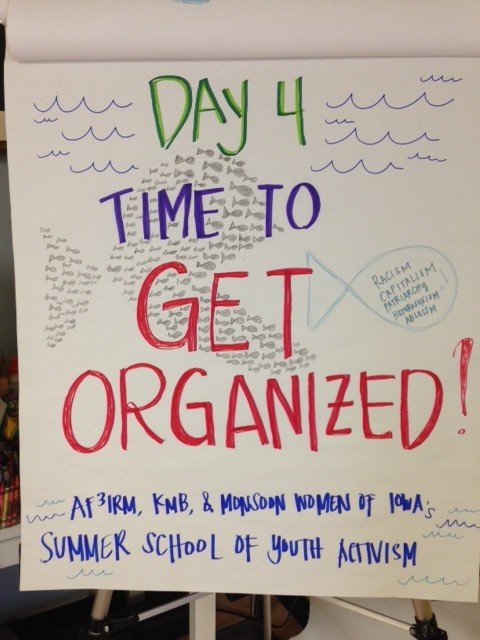 DAY 4
TIME TO
GET
ORGANIZED!
RACISM
CAPITALISM
PATRIARCHY
HETEROSEXISM
ABLEISM
AF3IRM, KMB, & MONSOON WOMEN OF IOWA's
SUMMER SCHOOL OF YOUTH ACTIVISM